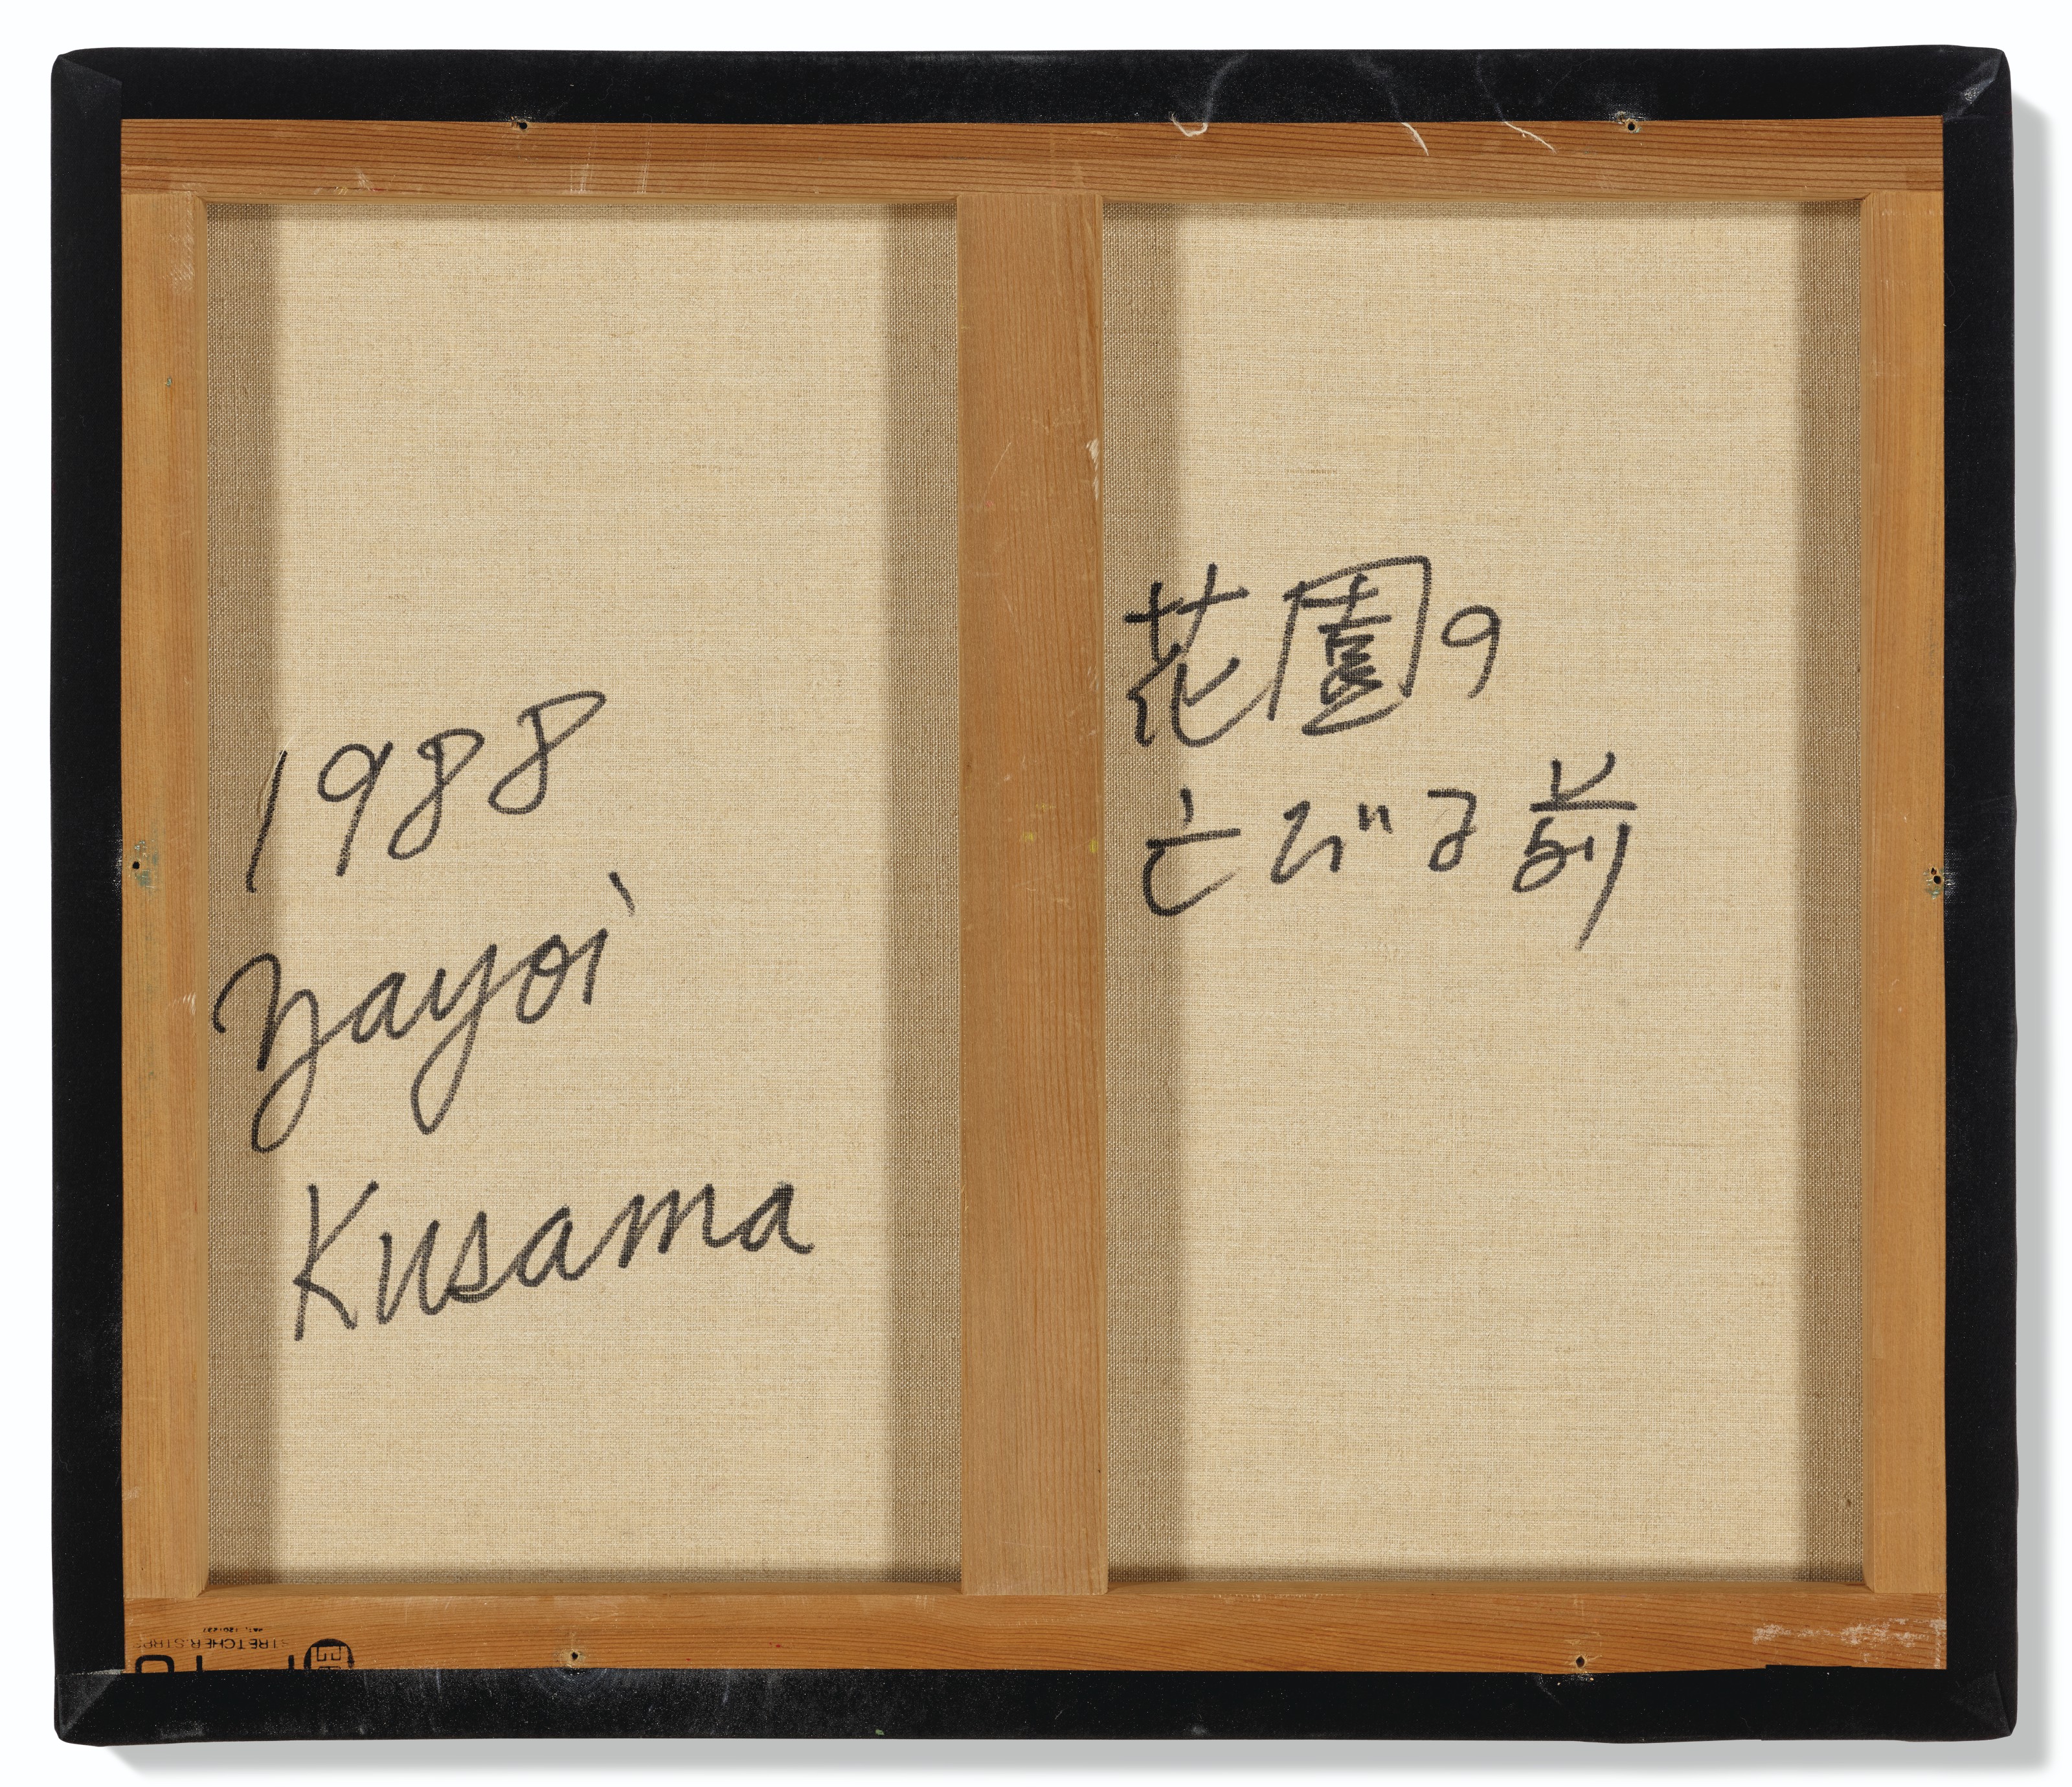 1988
Yayoi
Kusama
花園の
亡びる前
STRETCHER